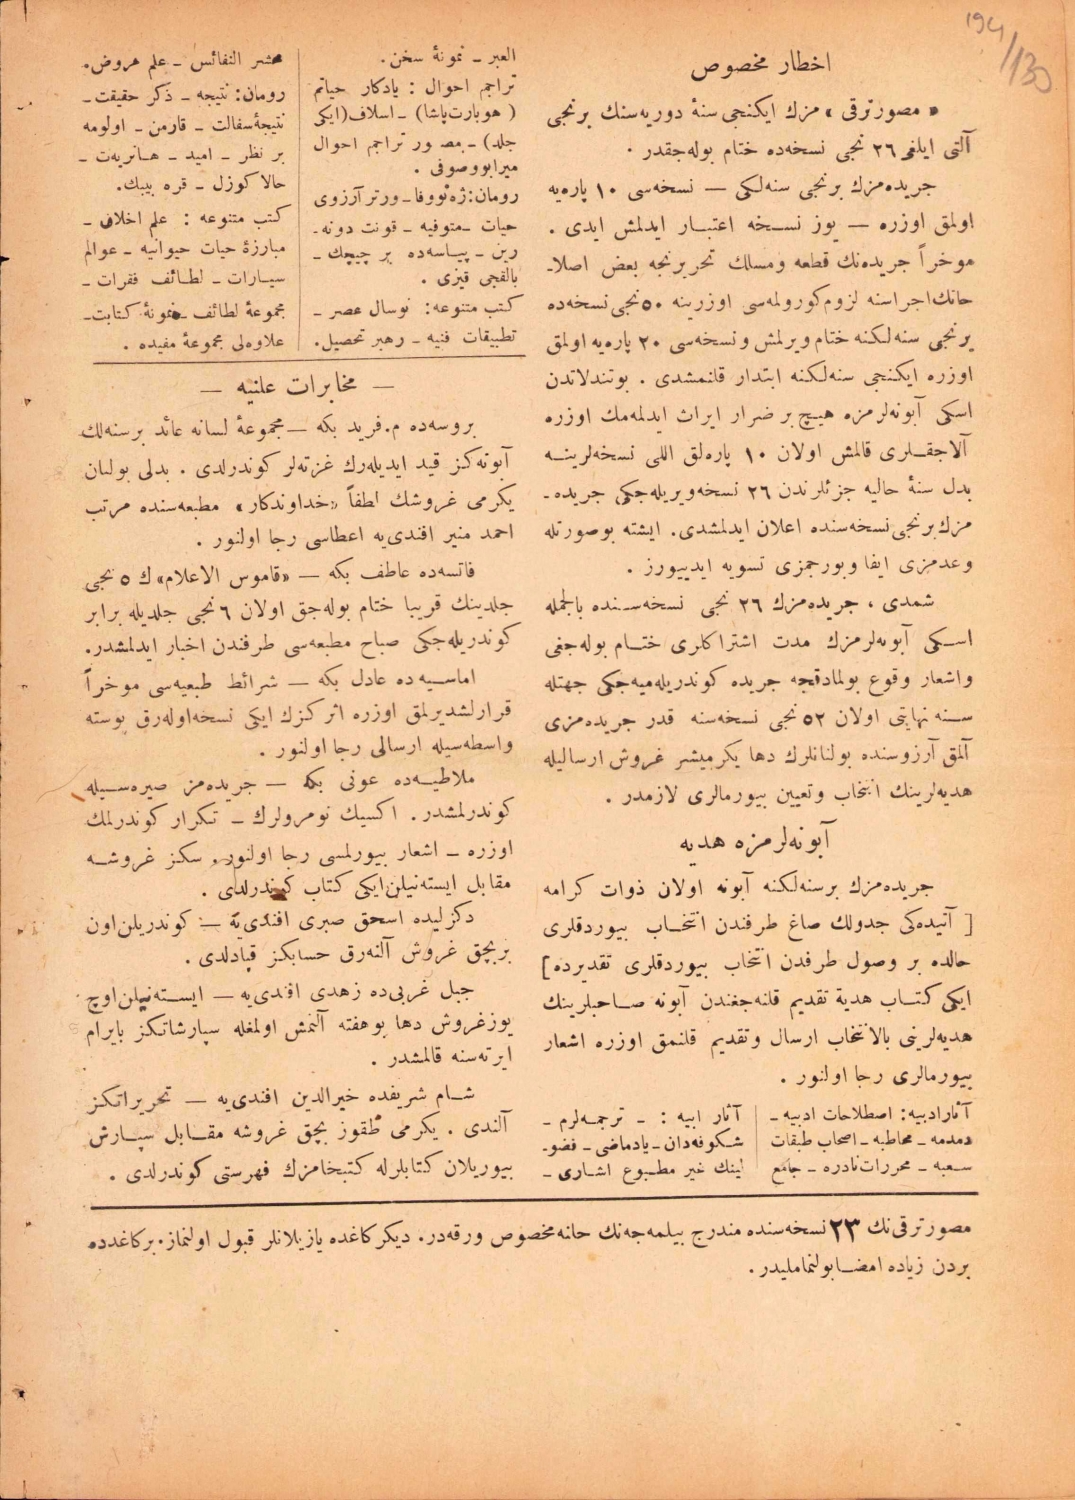 194/130
اخطار مخصوص
« مصور ترقی » مزك ایكنجی سنهٔ دوریه‌سنك برنجی
آلتی ایلغی ٢٦ نجی نسخه‌ده ختام بوله‌جقدر .
جریده‌مزك برنجی سنه‌لكی — نسخه‌سی ١٠ پاره‌یه
اولمق اوزره — یوز نسخه اعتبار ایدلمش ایدی .
موخراً جریده‌نك قطعه ومسلك تحریرنجه بعض اصلا-
حاتك اجراسنه لزوم كورولمه‌سی اوزرینه ٥٠ نجی نسخه‌ده
برنجی سنه‌لكنه ختام ویرلمش ونسخه‌سی ٢٠ پاره‌یه اولمق
اوزره ایكنجی سنه‌لكنه ابتدار قلنمشدی . بوتبدلاتدن
اسكی آبونه‌لرمزه هیچ بر ضرار ایراث ایدلمه‌مك اوزره
آلاجقلری قالمش اولان ١٠ پاره‌لق اللی نسخه‌لرینه
بدل سنهٔ حالیه جزئلرندن ٢٦ نسخه ویریله‌جكی جریده-
مزك برنجی نسخه‌سنده اعلان ایدلمشدی. ایشته بوصورتله
وعدمزی ایفا وبورجمزی تسویه ایدییورز .
شمدی ، جریده‌مزك ٢٦ نجی نسخه‌سنده بالجمله
اسكی آبونه‌لرمزك مدت اشتراكلری ختام بوله‌جغی
واشعار وقوع بولمادقجه جریده كوندریله‌میه‌جكی جهتله
سنه نهایتی اولان ٥٢ نجی نسخه‌سنه قدر جریده‌مزی
آلمق آرزوسنده بولنانلرك دها یكرمیشر غروش ارسالیله
هدیه‌لرینك انتخاب وتعیین بیورمالری لازمدر .
آبونه‌لرمزه هدیه
جریده‌مزك برسنه‌لكنه آبونه اولان ذوات كرامه
[ آتیده‌كی جدولك صاغ طرفندن انتخاب بیوردقلری
حالده بر وصول طرفدن انتخاب بیوردقلری تقدیرده]
ایكی كتاب هدیة تقدیم قلنه‌جغندن آبونه صاحبلرینك
هدیه‌لرینی بالانتخاب ارسال وتقدیم قلنمق اوزره اشعار
بیورمالری رجا اولنور .
آثارادبیه: اصطلاحات ادبیه -
دمدمه - مخاطبه - اصحاب طبقات
سبعه - محررات نادره - جامع
آثار ادبیه : - ترجمه‌لرم -
شكوفه‌دان - یادماضی - فضو-
لینك غیر مطبوع اشعاری -
العبر - نمونهٔ سخن.
تراجم احوال : یادكار حیاتم
( هوبارت پاشا) - اسلاف (ایكی
جلد) - مصور تراجم احوال
میرابووصوفی .
رومان: ژه‌نووفا - ورتر آرزوی
حیات - متوفیه - قونت دونه-
رین - پیاسه‌ده بر چیچك -
بالقجی قیزی .
كتب متنوعه: نوسال عصر -
تطبیقات فنیه - رهبر تحصیل.
محشر النفائس - علم عروض.
رومان: نتیجه - ذكر حقیقت -
نتیجهٔ سفالت - قارمن - اولومه
بر نظر - امید - هانریه‌ت -
حالا كوزل - قره ببك.
كتب متنوعه : علم اخلاق -
مبارزهٔ حیات حیوانیه - عوالم
سیارات - لطائف فقرات -
مجموعهٔ لطائف - نمونهٔ كتابت-
علاوه‌لی مجموعهٔ مفیده .
— مخابرات علنیه —
بروسه‌ده م.فرید بكه — مجموعهٔ لسانه عائد برسنه‌لك
آبونه‌كز قید ایدیله‌رك غزته‌لر كوندرلدی . بدلی بولنان
یكرمی غروشك لطفاً «خداوندكار» مطبعه‌سنده مرتب
احمد منیر افندی‌یه اعطاسی رجا اولنور .
فاتسه‌ده عاطف بكه — «قاموس الاعلام» ك ٥ نجی
جلدینك قریبا ختام بوله‌جق اولان ٦ نجی جلدیله برابر
كوندریله‌جكی صباح مطبعه‌سی طرفندن اخبار ایدلمشدر.
اماسیه‌ده عادل بكه — شرائط طبعیه‌سی موخراً
قرارلشدیرلمق اوزره اثركزك ایكی نسخه‌اوله‌رق پوسته
واسطه‌سیله ارسالی رجا اولنور .
ملاطیه‌ده عونی بكه — جریده‌مز صیره‌سیله
كوندرلمشدر . اكسیك نومرولرك - تكرار كوندرلمك
اوزره - اشعار بیورلمسی رجا اولنور. سكز غروشه
مقابل ایسته‌نیلن ایكی كتاب كوندرلدی .
دكزلیده اسحق صبری افندی‌یه — كوندریلن اون
بربچق غروش آلنه‌رق حسابكز قپادلدی .
جبل غربی‌ده زهدی افندی‌یه — ایسته‌نیلن اوچ
یوزغروش دها بوهفته آلنمش اولمغله سپارشاتكز بایرام
ایرته‌سنه قالمشدر .
شام شریفده خیرالدین افندی‌یه — تحریراتكز
آلندی . یكرمی طقوز بچق غروشه مقابل سپارش
بیوریلان كتابلرله كتبخانمزك فهرستی كوندرلدی .
مصور ترقی‌نك ٢٣ نسخه‌سنده مندرج بیلمه‌جه‌نك خانه‌مخصوص ورقه‌در. دیكر كاغده یازیلانلر قبول اولنماز. بركاغدده
بردن زیاده امضا بولنماملیدر.